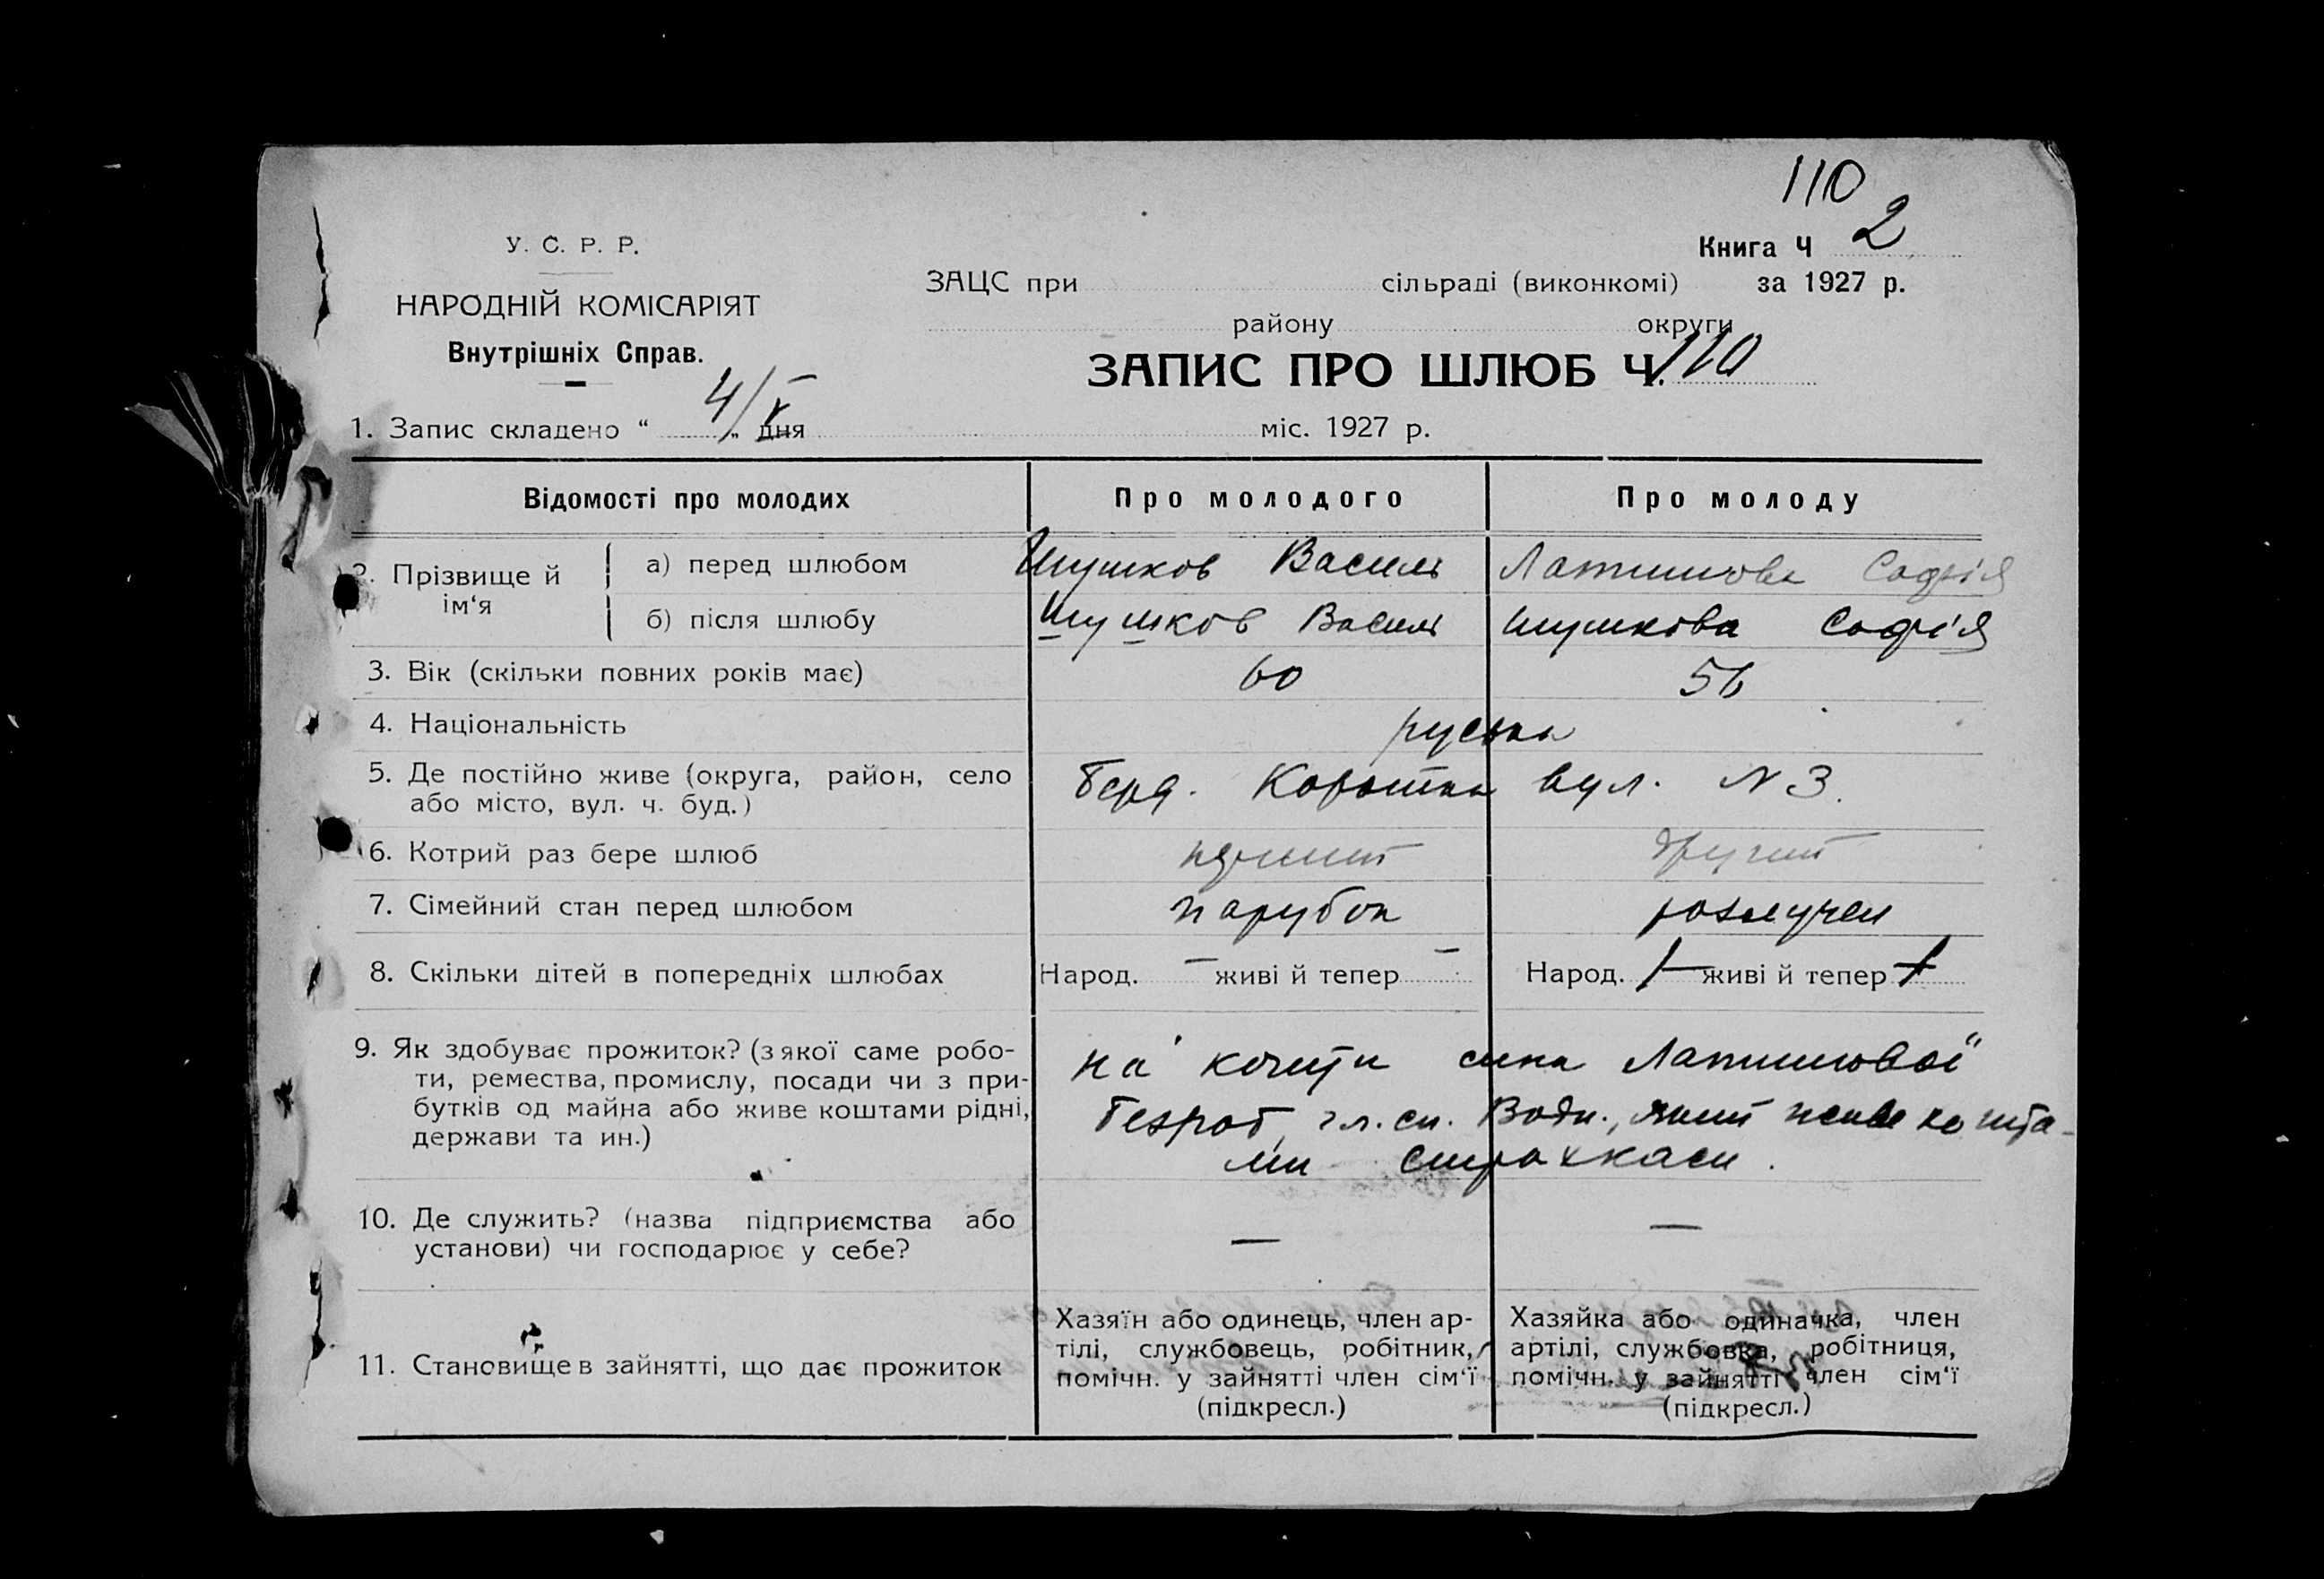 110
У. С. Р. Р.
Книга Ч 2
ЗАЦС при сільраді (виконкомі) за 1927 р.
НАРОДНІЙ КОМІСАРІЯТ
району округи
Внутрішніх Справ.
ЗАПИС ПРО ШЛЮБ Ч. 110
1. Запис складено “ 4/V „ дня міс. 1927 р.
Відомості про молодих Про молодого Про молоду
2. Прізвище й ім‘я
а) перед шлюбом Шушков Василь Латишова Софія
б) після шлюбу Шушков Василь Шушкова Софія
3. Вік (скільки повних років має) 60 56
4. Національність руська
5. Де постійно живе (округа, район, село
або місто, вул. ч. буд.) Берд. Коротка вул. N 3.
6. Котрий раз бере шлюб другий
7. Сімейний стан перед шлюбом парубок розлучен
8. Скільки дітей в попередніх шлюбах Народ. – живі й тепер – Народ. 1 – живі й тепер 1
9. Як здобуває прожиток? (з якої саме робо-
ти, ремества, промислу, посади чи з при-
бутків од майна або живе коштами рідні,
держави та ин.)
на кошти сина Латишової
безроб, гл. сп. Водн., який живе кошта-
ми страхкаси.
10. Де служить? (назва підприємства або
установи) чи господарює у себе? — —
11. Становище в зайнятті, що дає прожиток
Хазяїн або одинець, член ар-
тілі, службовець, робітник,
помічн. у зайнятті член сім‘ї
(підкресл.)
Хазяйка або одиначка, член
артілі, службовка, робітниця,
помічн. у зайнятті член сім‘ї
(підкресл.)